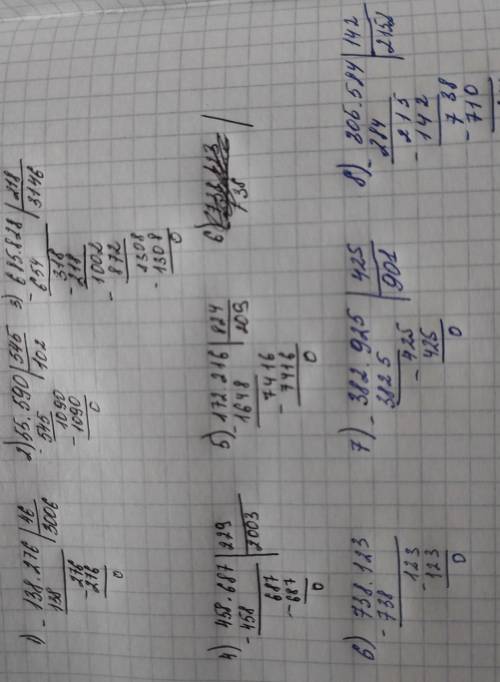 1) - 138.276 | 46
138 | 3006
- 276
276
0
2) 55.590 | 545
- 545 | 102
- 1090
1090
0
3) 685.828 | 218
- 654 | 3146
- 318
218
- 1002
872
- 1308
1308
0
4) - 458.687 | 229
458 | 2003
- 687
687
0
5) - 172.216 | 824
1648 | 209
- 7416
7416
0
6)
738
6) - 738.123
738
- 123
123
0
7) - 382.925 | 425
3825 | 901
- 425
425
0
8) - 306.584 | 142
284 | 2152
- 215
142
- 738
710